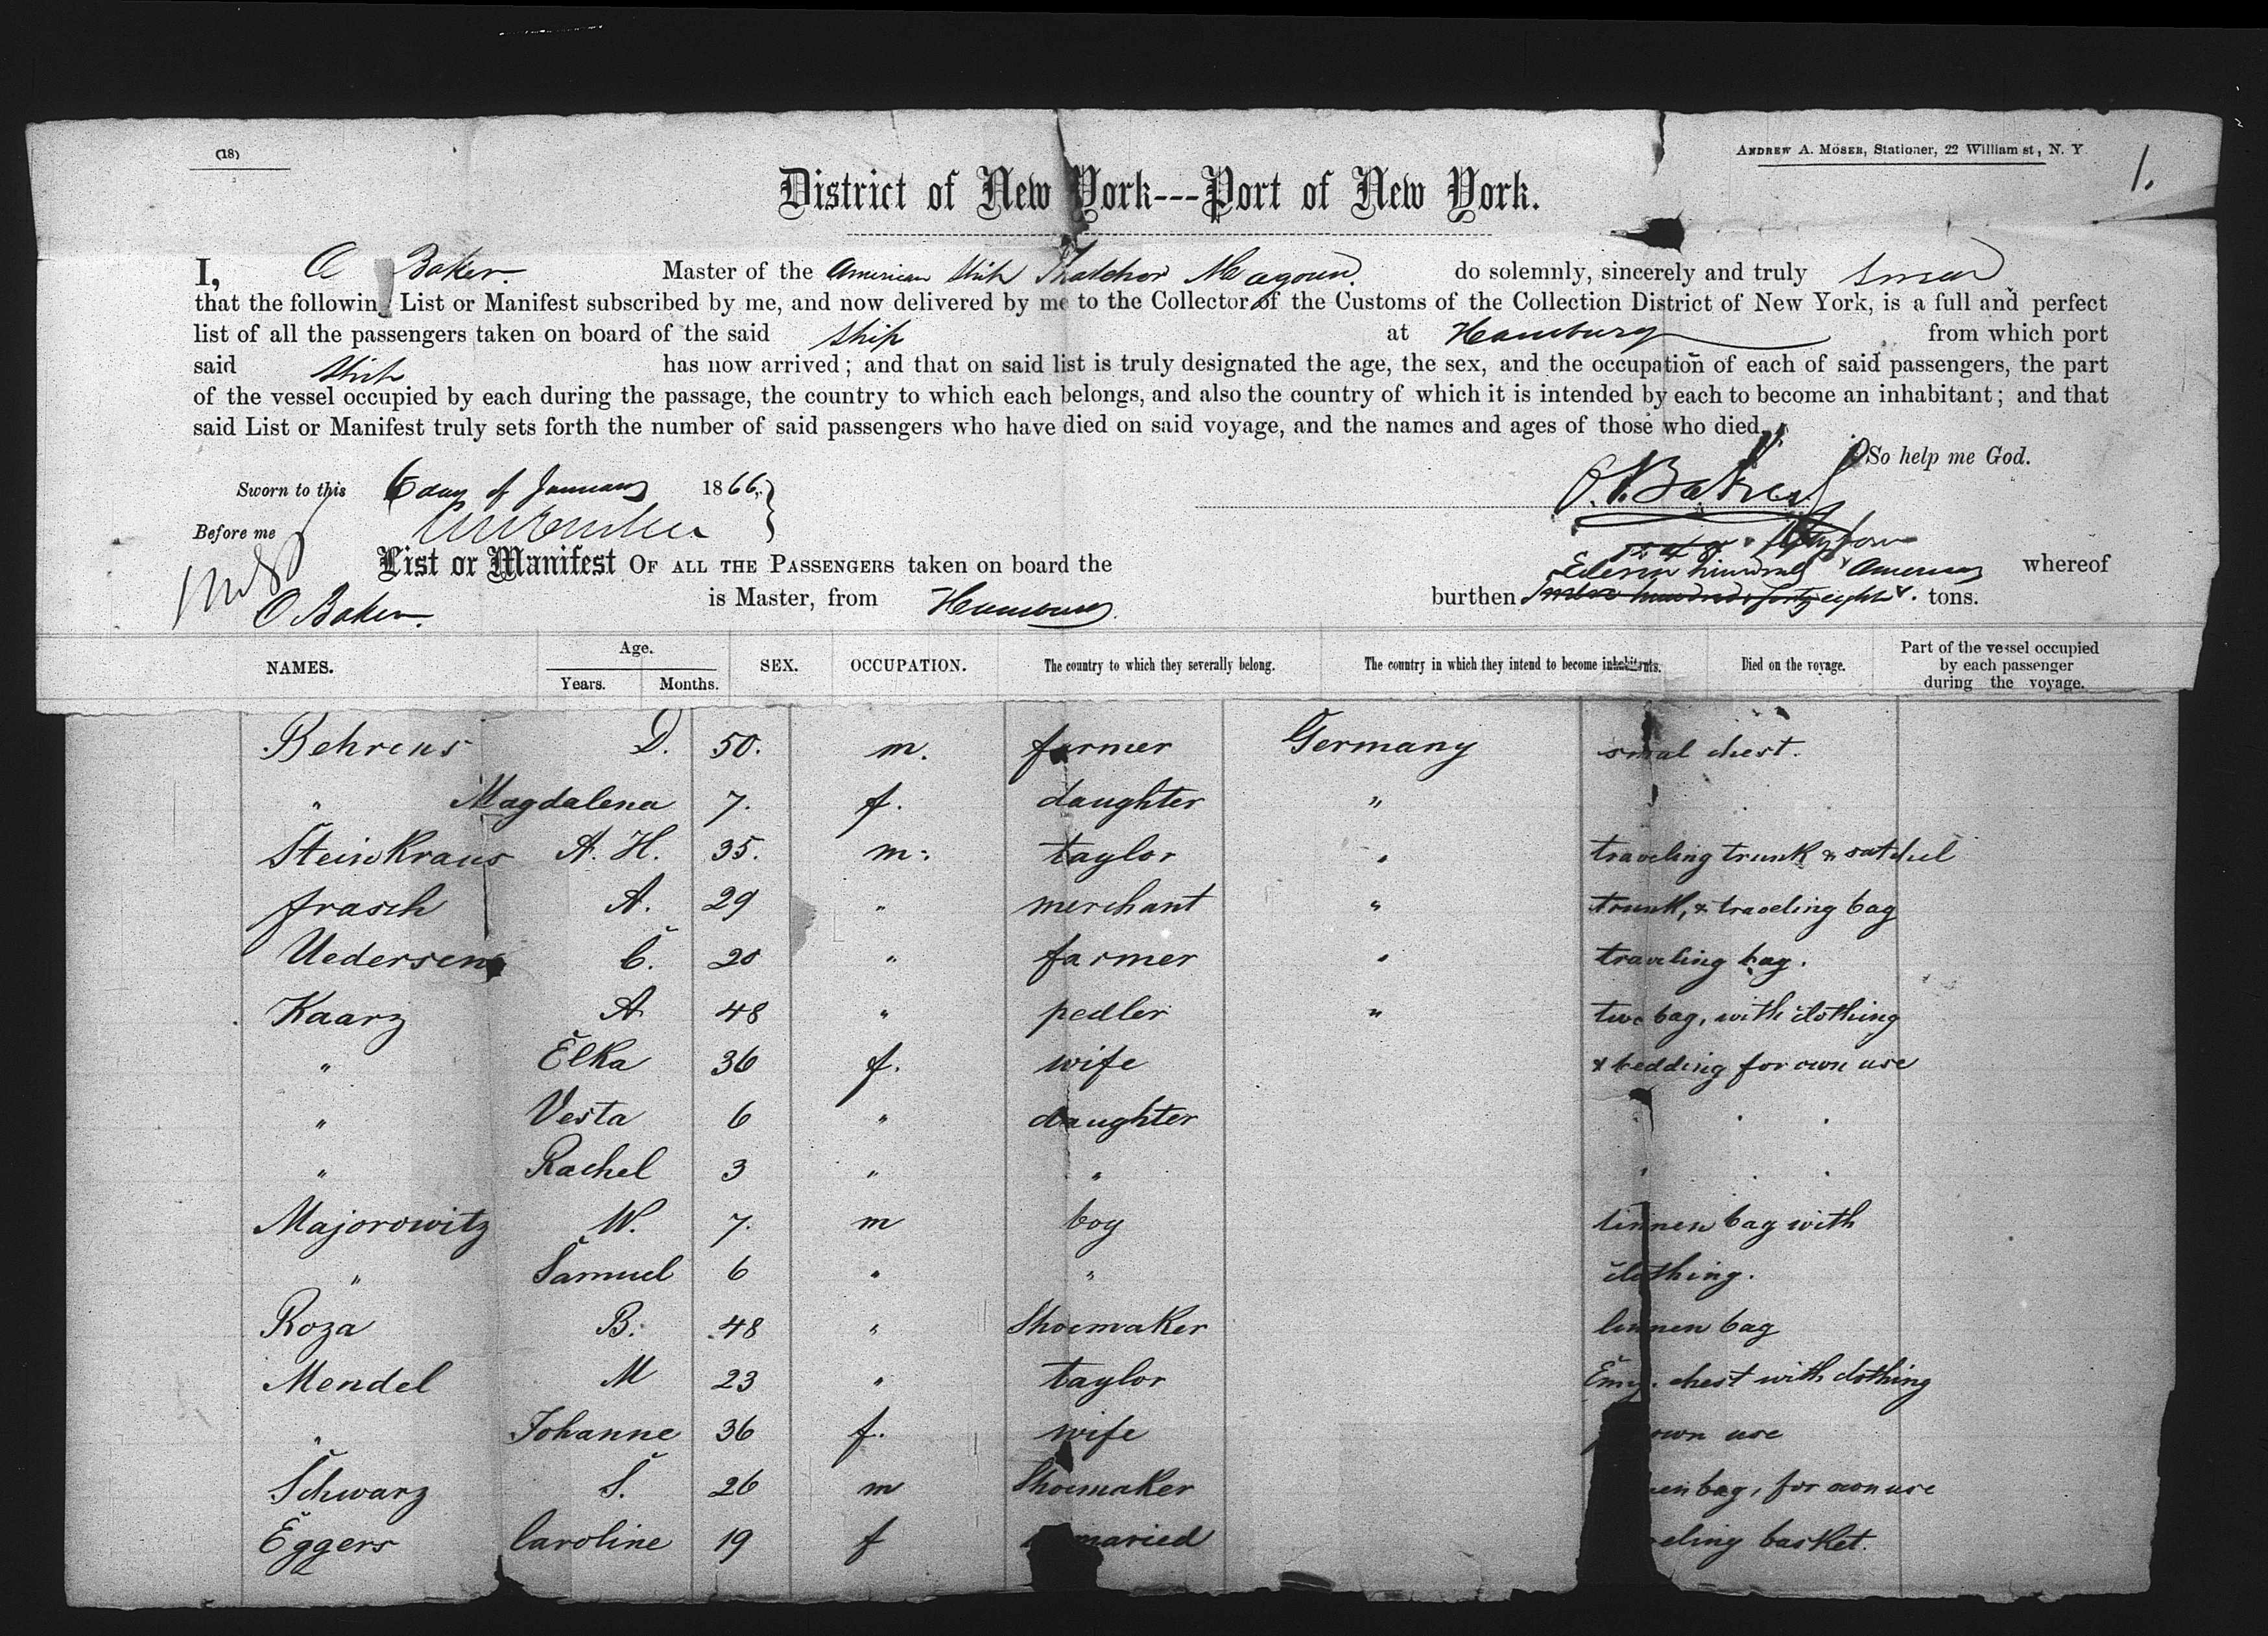 (18)
ANDREW A. MÖSER, Stationer, 22 William st, N. Y
1.
District of New York---Port of New York.
I, O Baker. Master of the American Ship Thatcher Magoun. do solemnly, sincerely and truly swear
that the followin List or Manifest subscribed by me, and now delivered by me to the Collector of the Customs of the Collection District of New York, is a full and perfect
list of all the passengers taken on board of the said Ship at Hamburg from which port
said Ship has now arrived; and that on said list is truly designated the age, the sex, and the occupation of each of said passengers, the part
of the vessel occupied by each during the passage, the country to which each belongs, and also the country of which it is intended by each to become an inhabitant; and that
said List or Manifest truly sets forth the number of said passengers who have died on said voyage, and the names and ages of those who died.
So help me God.
Sworn to this 6 day of January 1866. O. Baker
Before me
List or Manifest OF ALL THE PASSENGERS taken on board the American whereof
O Baker. is Master, from Hamburg. burthen Eleven hundred tons.
NAMES. Age. Years. Months. SEX. OCCUPATION. The country to which they severally belong. The country in which they intend to become inhabitants. Died on the voyage. Part of the vessel occupied by each passenger during the voyage.
Behrens D. 50. m. farmer Germany smal chest.
" Magdalena 7. f. daughter "
Steinkraus A. H. 35. m. taylor " traveling trunk & satchel
Frasch A. 29 " merchant " trunk, & traveling bag
Uedersen C. 20 " farmer " traveling bag.
Kaarz A 48 " pedler " two bag, with clothing
" Elka 36 f. wife & bedding for own use
" Vesta 6 " daughter
" Rachel 3 " "
Majorowitz W. 7. m boy linnen bag with
" Samuel 6 " " clothing.
Roza B. 48 " Shoemaker linnen bag
Mendel M 23 " taylor chest with clothing
" Johanne 36 f. wife own use
Schwarz S. 26 m Shoemaker bag, for own use
Eggers Caroline 19 f maried basket.